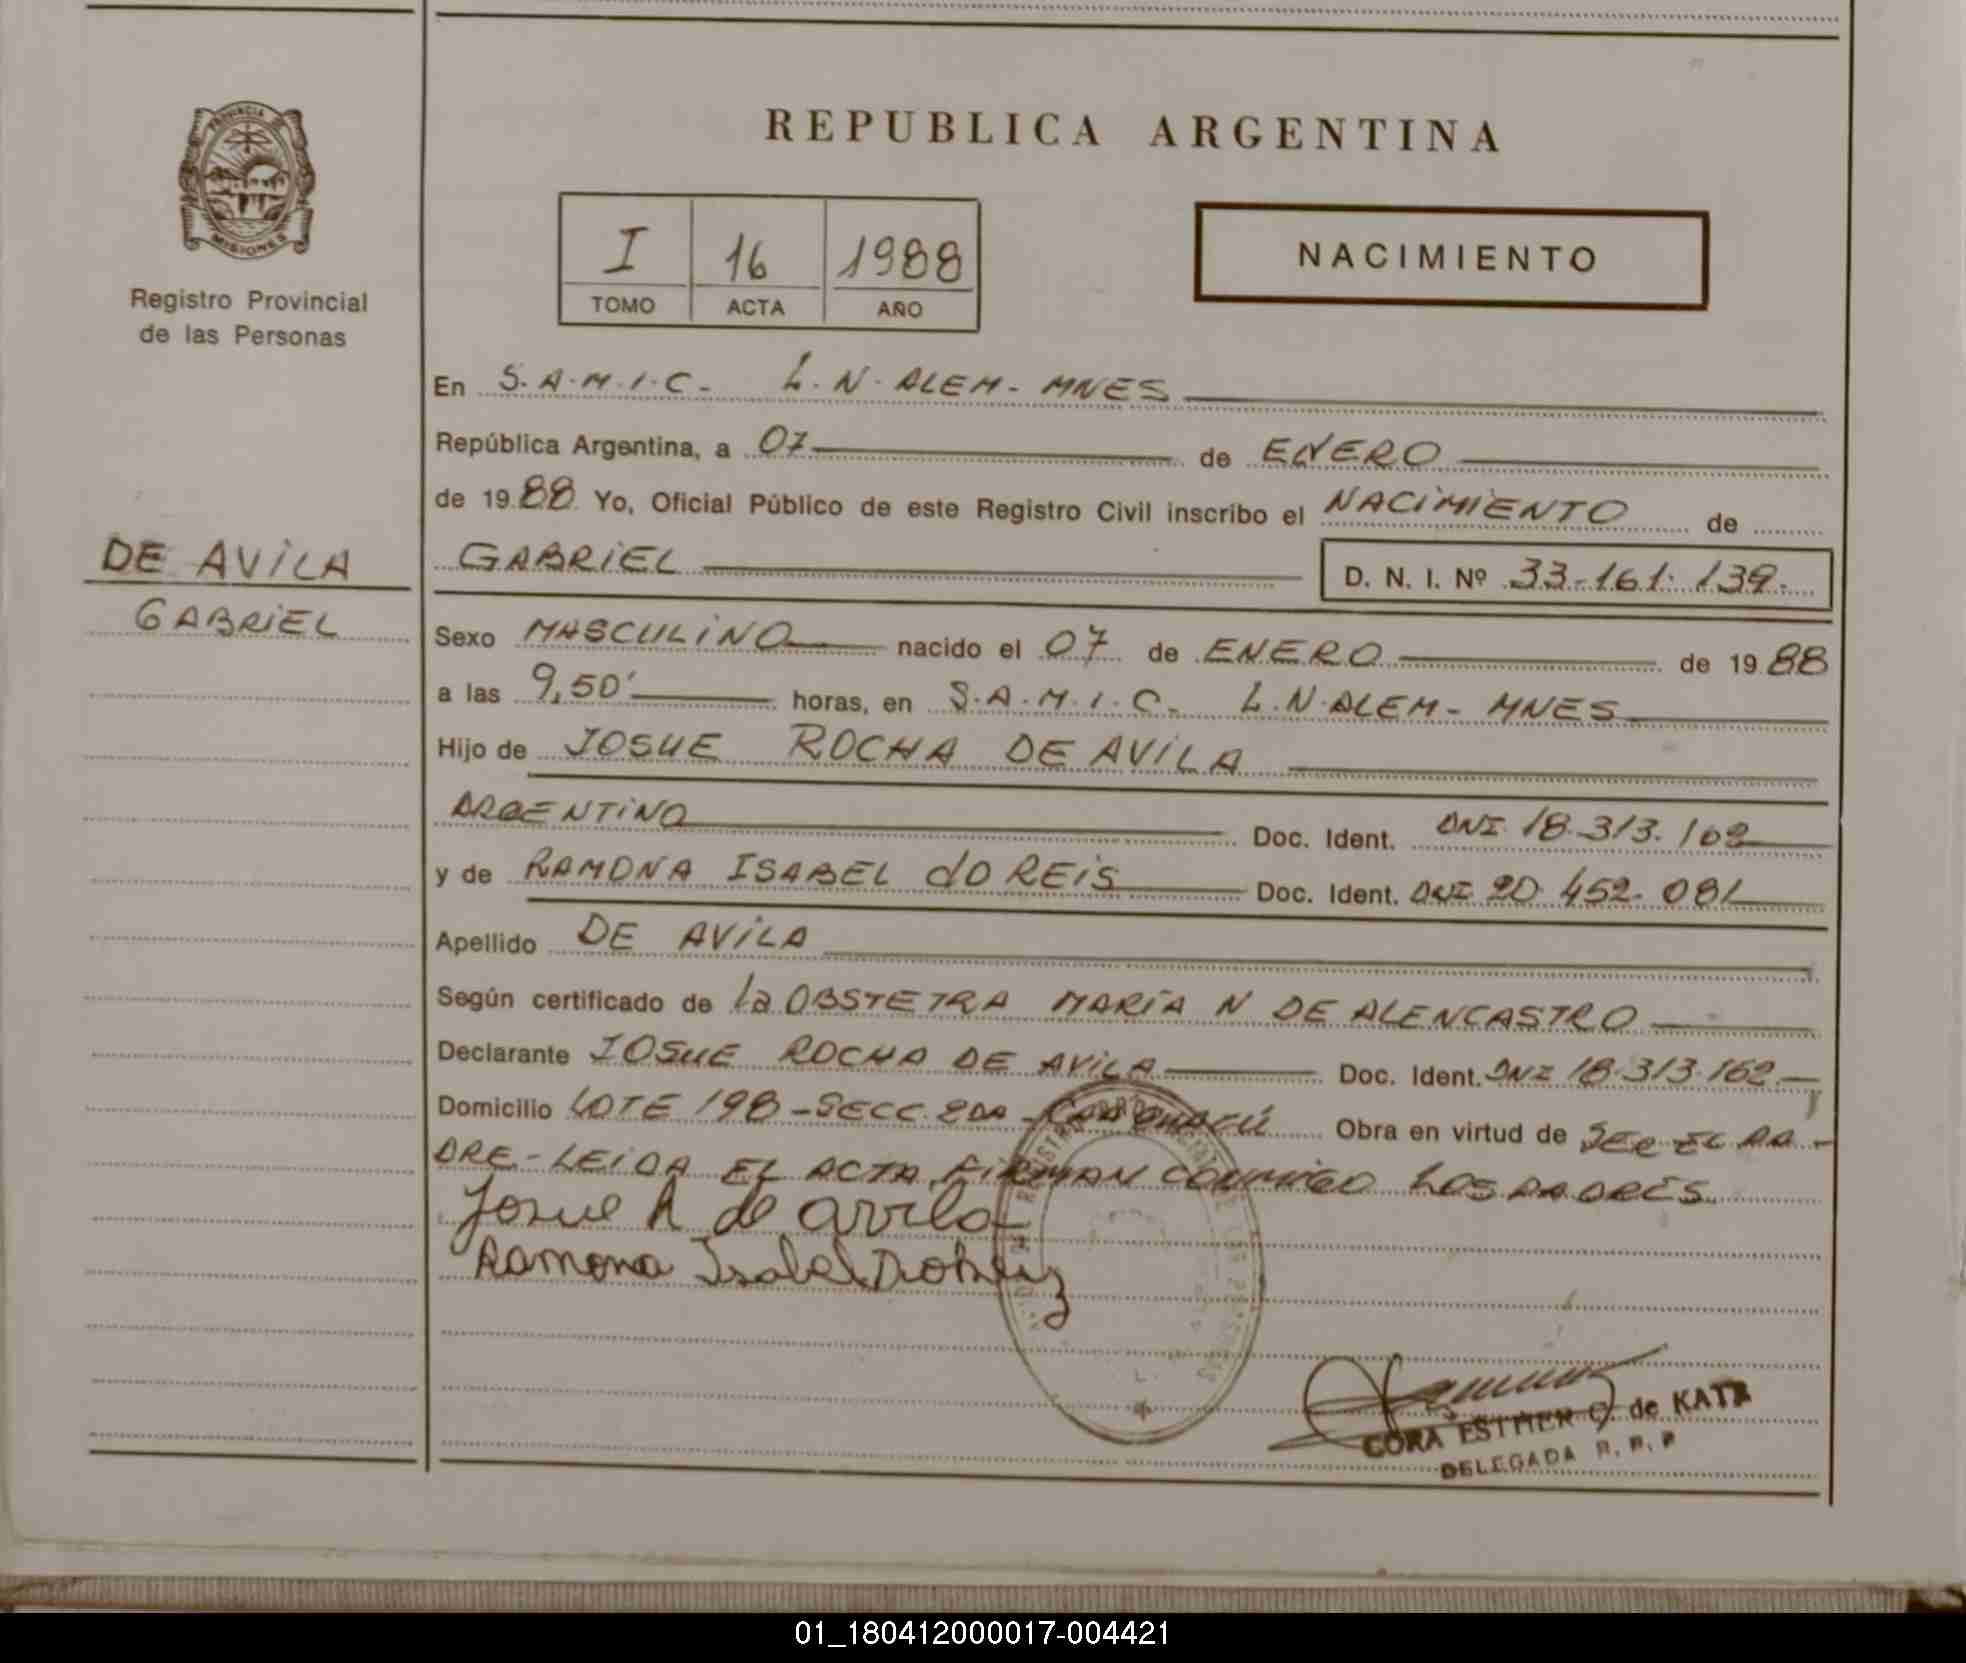 PROVINCIA DE
MISIONES
Registro Provincial
de las Personas
DE AVILA
GABRIEL
REPUBLICA ARGENTINA
I 16 1988
TOMO ACTA AÑO
NACIMIENTO
En S.A.M.I.C. L.N.ALEM-MNES
República Argentina, a 07 de ENERO
de 1988 Yo, Oficial Público de este Registro Civil inscribo el NACIMIENTO de
GABRIEL D. N. I. Nº 33.161.139.
Sexo MASCULINO nacido el 07 de ENERO de 1988
a las 9,50' horas, en S.A.M.I.C. L.N.ALEM-MNES
Hijo de JOSUE ROCHA DE AVILA
ARGENTINO Doc. Ident. DNI 18.313.162
y de RAMONA ISABEL dO REIS Doc. Ident. DNI 20.452.081
Apellido DE AVILA
Según certificado de la OBSTETRA MARÍA N DE ALENCASTRO
Declarante JOSUE ROCHA DE AVILA Doc. Ident. DNI 18.313.162.-
Domicilio LOTE 198-SECC. 2DA- Obra en virtud de SER EL PA-
DRE-LEIDA EL ACTA, FIRMAN CONMIGO LOS PADRES.
Josue R de avila
Ramona Isabel
CORA ESTHER G. de KATZ
DELEGADA R. P. P
01_180412000017-004421